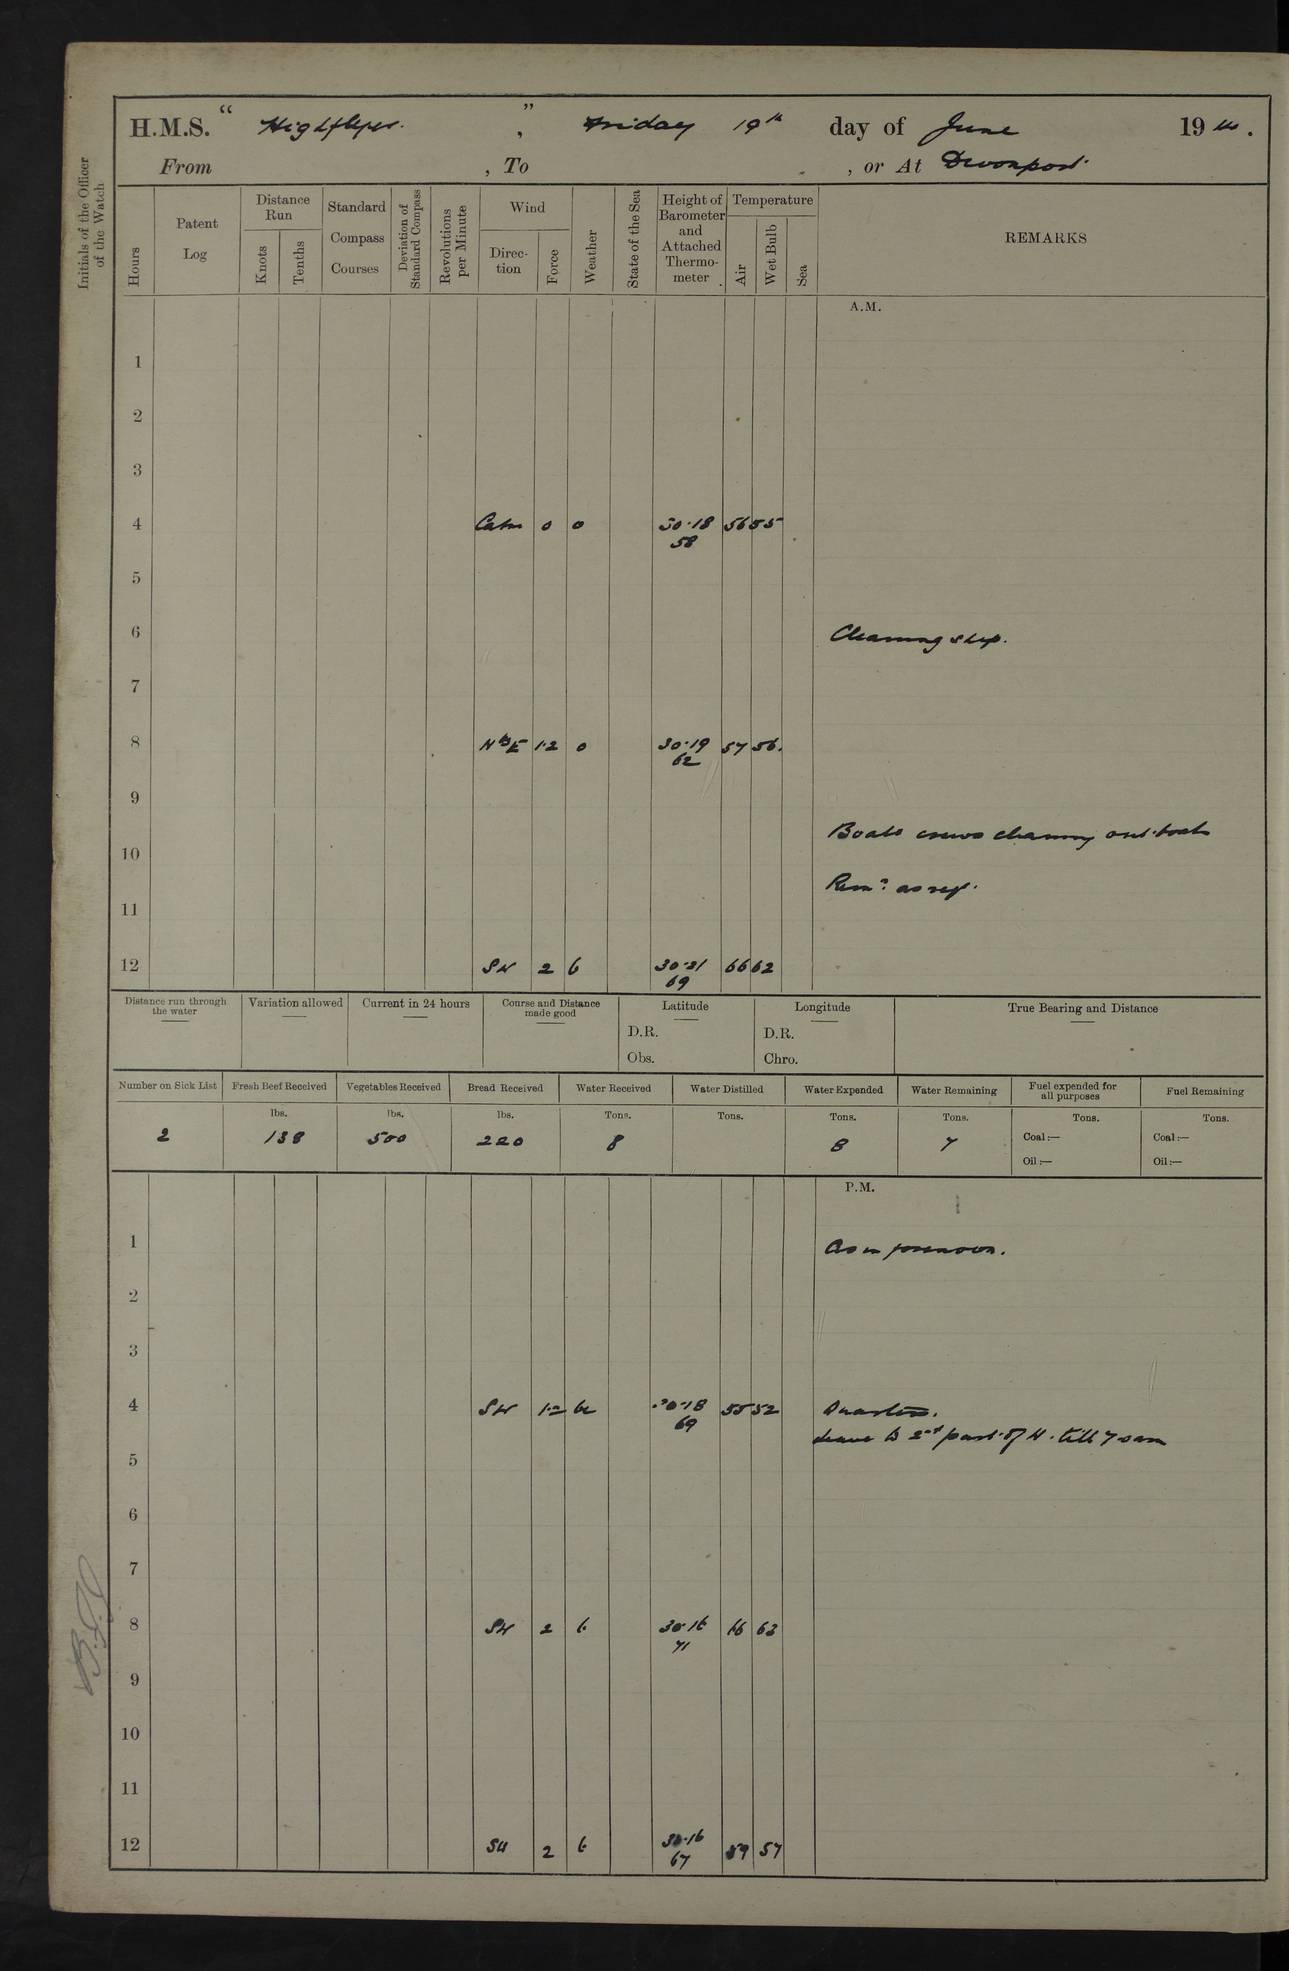 H.M.S. "Highflyer.", Friday 19th day of June 1914.
From , To , or At Devonport
Initials of the Officer of the Watch
Hours
Patent Log
Distance Run
Knots
Tenths
Standard Compass Courses
Deviation of Standard Compass
Revolutions per Minute
Wind
Direction
Force
Weather
State of the Sea
Height of Barometer and Attached Thermometer
Temperature
Air
Wet Bulb
Sea
REMARKS
A.M.
1
2
3
4 Calm 0 o 30.18 56 55
58
5
6 Cleaning ship.
7
8 N b E 1.2 o 30.19 57 56.
62
9
Boats crews cleaning out boats
10
Remr as req.
11
12 SW 2 b 30.21 66 62
69
Distance run through the water
Variation allowed
Current in 24 hours
Course and Distance made good
Latitude
D.R.
Obs.
Longitude
D.R.
Chro.
True Bearing and Distance
Number on Sick List
Fresh Beef Received
Vegetables Received
Bread Received
Water Received
Water Distilled
Water Expended
Water Remaining
Fuel expended for all purposes
Fuel Remaining
lbs. lbs. lbs. Tons. Tons. Tons. Tons. Tons. Tons.
2 138 500 220 8 8 7
Coal:— Coal:—
Oil:— Oil:—
P.M.
1 As in forenoon.
2
3
4 SW 1.2 bc 30.18 55 52 Quarters.
69
Leave to 2nd part of W. till 7 am
5
6
7
8 SW 2 b 30.16 66 63
71
9
10
11
12 SW 2 b 30.16 59 57
67